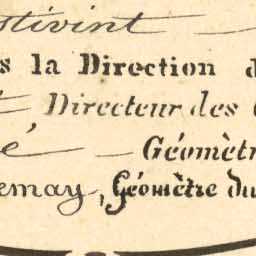 stivint
s la Direction d
Directeur des
é — Géomètr
emay, Géomètre du